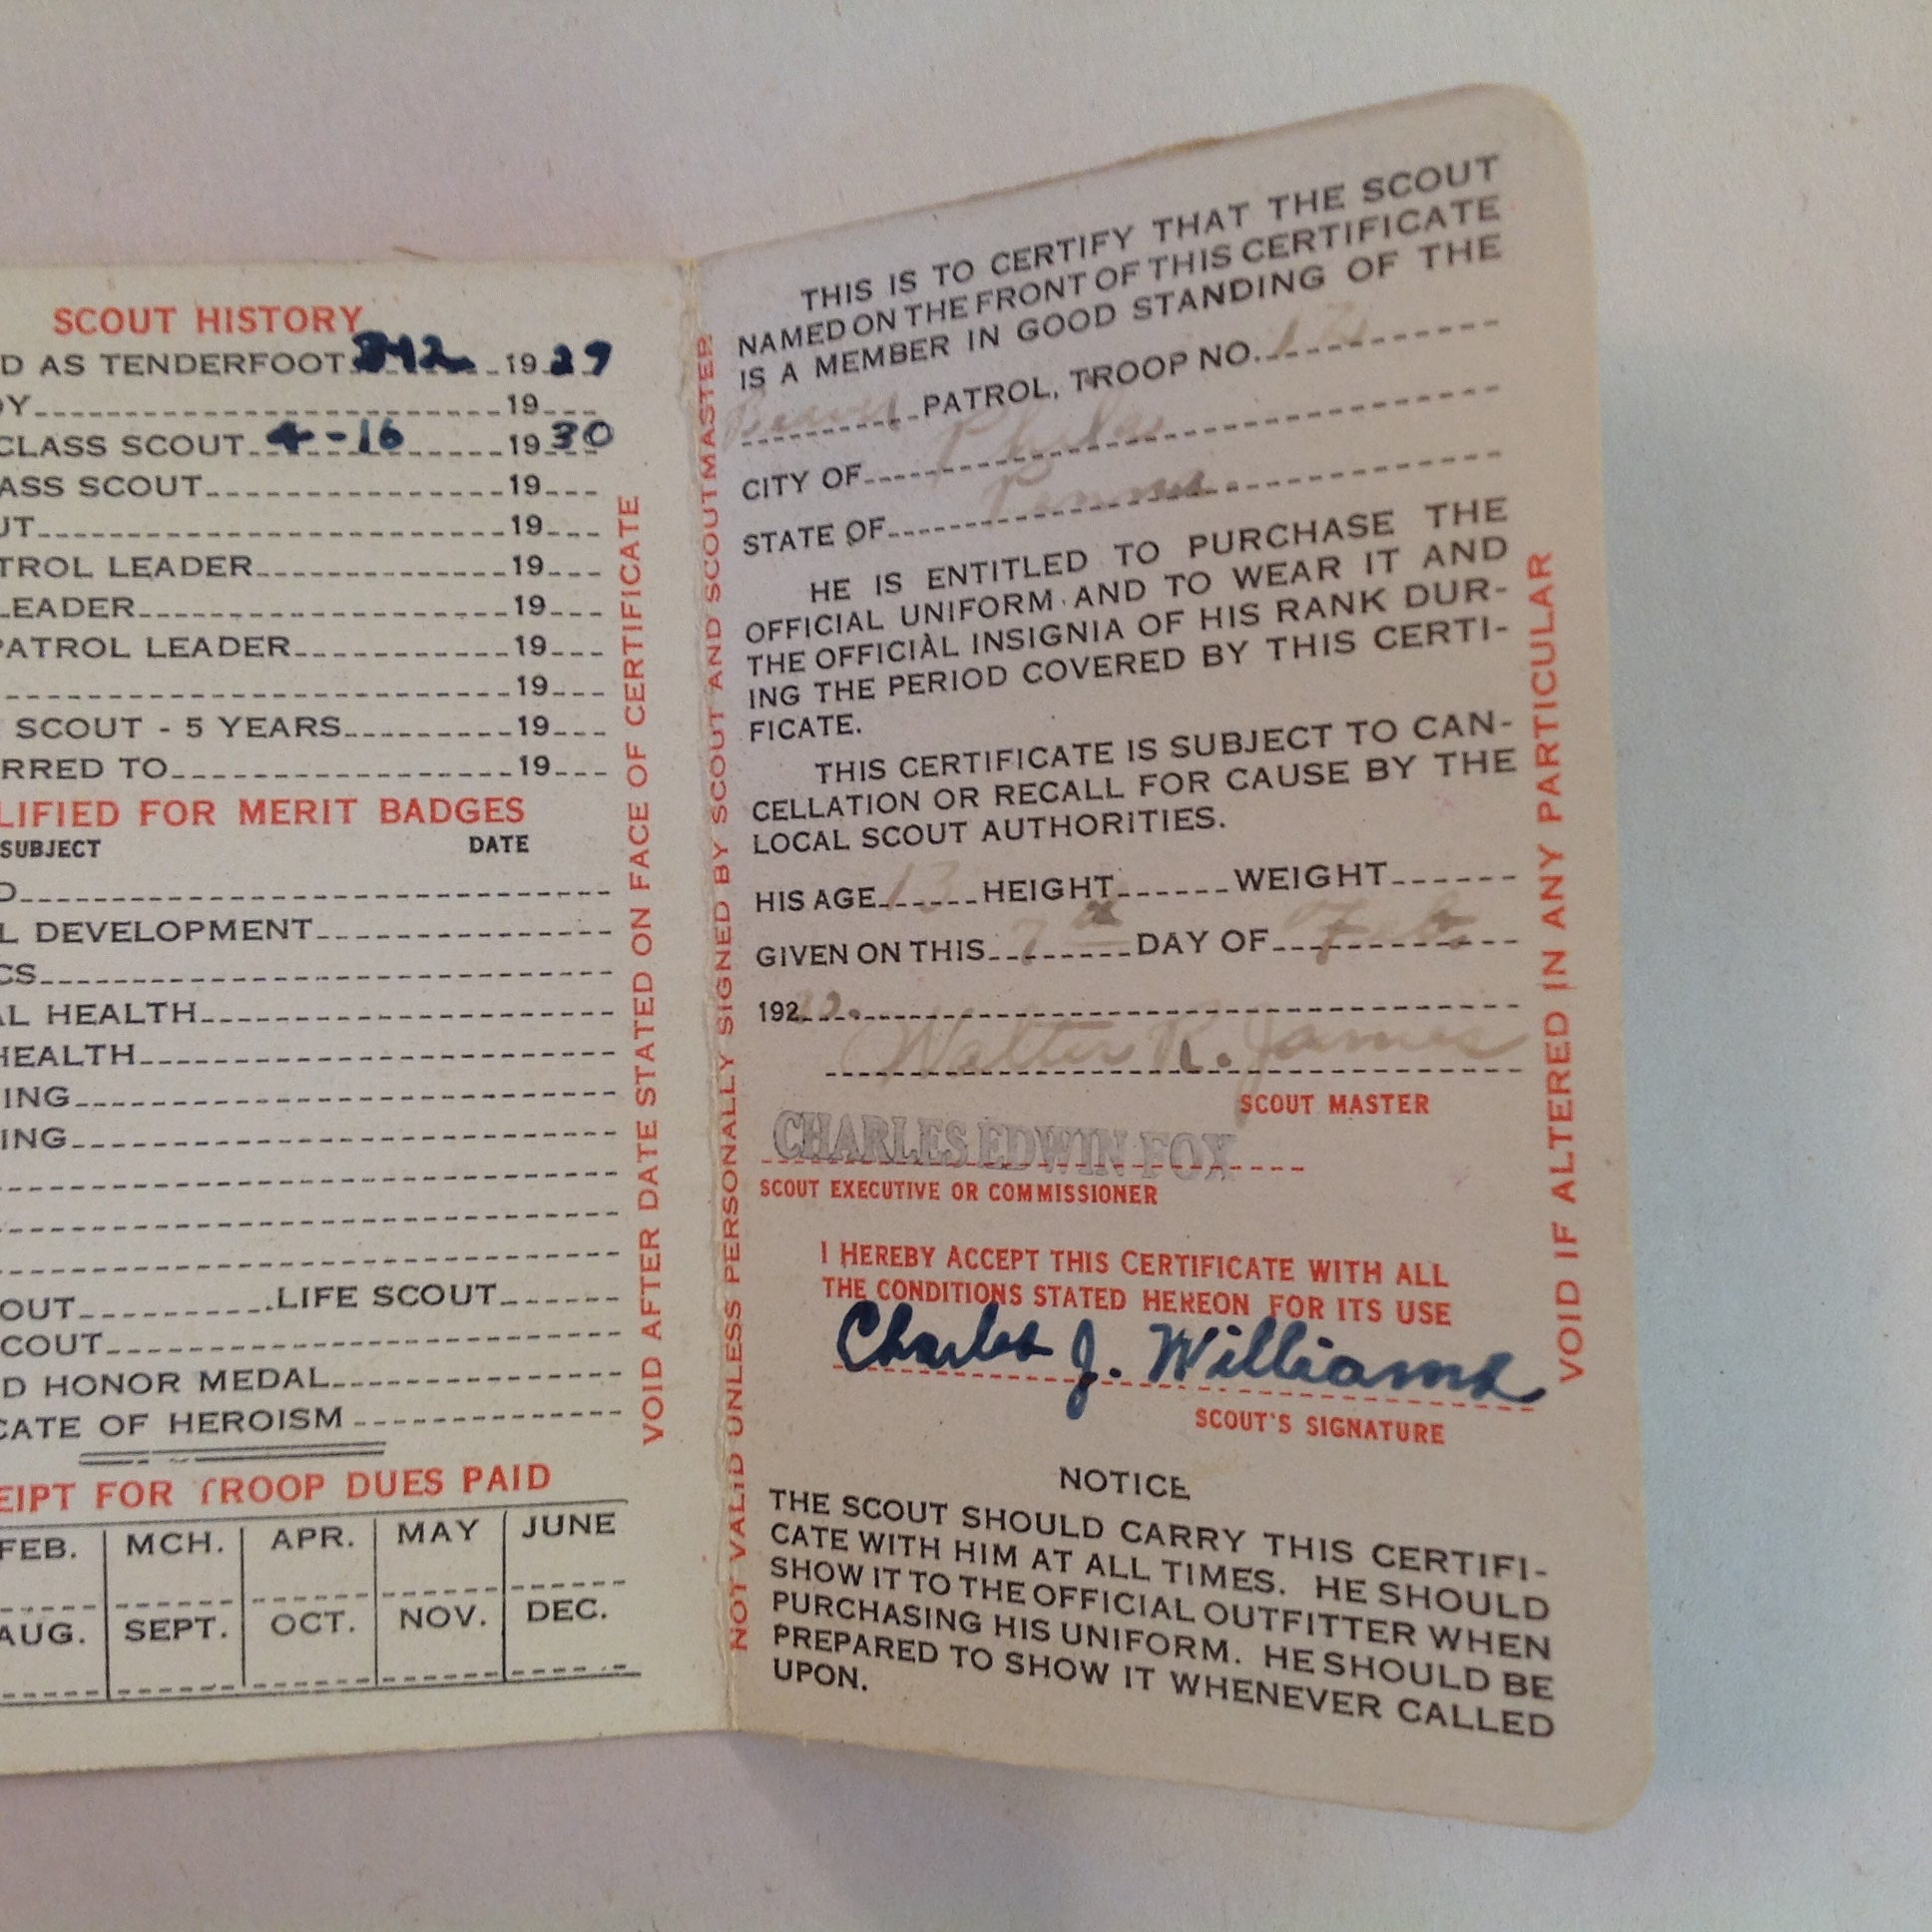 SCOUT HISTORY
D AS TENDERFOOT 1929
Y 19
CLASS SCOUT 4-16 1930
ASS SCOUT 19
UT 19
TROL LEADER 19
LEADER 19
PATROL LEADER 19
19
SCOUT - 5 YEARS 19
RRED TO 19
LIFIED FOR MERIT BADGES
SUBJECT DATE
D
L DEVELOPMENT
CS
AL HEALTH
HEALTH
ING
ING
OUT LIFE SCOUT
COUT
D HONOR MEDAL
CATE OF HEROISM
EIPT FOR TROOP DUES PAID
FEB. MCH. APR. MAY JUNE
AUG. SEPT. OCT. NOV. DEC.
VOID AFTER DATE STATED ON FACE OF CERTIFICATE
NOT VALID UNLESS PERSONALLY SIGNED BY SCOUT AND SCOUTMASTER
THIS IS TO CERTIFY THAT THE SCOUT
NAMED ON THE FRONT OF THIS CERTIFICATE
IS A MEMBER IN GOOD STANDING OF THE
Beaver PATROL, TROOP NO.
CITY OF Phila
STATE OF Penna.
HE IS ENTITLED TO PURCHASE THE
OFFICIAL UNIFORM AND TO WEAR IT AND
THE OFFICIAL INSIGNIA OF HIS RANK DUR-
ING THE PERIOD COVERED BY THIS CERTI-
FICATE.
THIS CERTIFICATE IS SUBJECT TO CAN-
CELLATION OR RECALL FOR CAUSE BY THE
LOCAL SCOUT AUTHORITIES.
HIS AGE 13 HEIGHT WEIGHT
GIVEN ON THIS 7th DAY OF Feb
192
Walter R. James
SCOUT MASTER
CHARLES EDWIN FOX
SCOUT EXECUTIVE OR COMMISSIONER
I HEREBY ACCEPT THIS CERTIFICATE WITH ALL
THE CONDITIONS STATED HEREON FOR ITS USE
Charles J. Williams
SCOUT'S SIGNATURE
NOTICE
THE SCOUT SHOULD CARRY THIS CERTIFI-
CATE WITH HIM AT ALL TIMES. HE SHOULD
SHOW IT TO THE OFFICIAL OUTFITTER WHEN
PURCHASING HIS UNIFORM. HE SHOULD BE
PREPARED TO SHOW IT WHENEVER CALLED
UPON.
VOID IF ALTERED IN ANY PARTICULAR